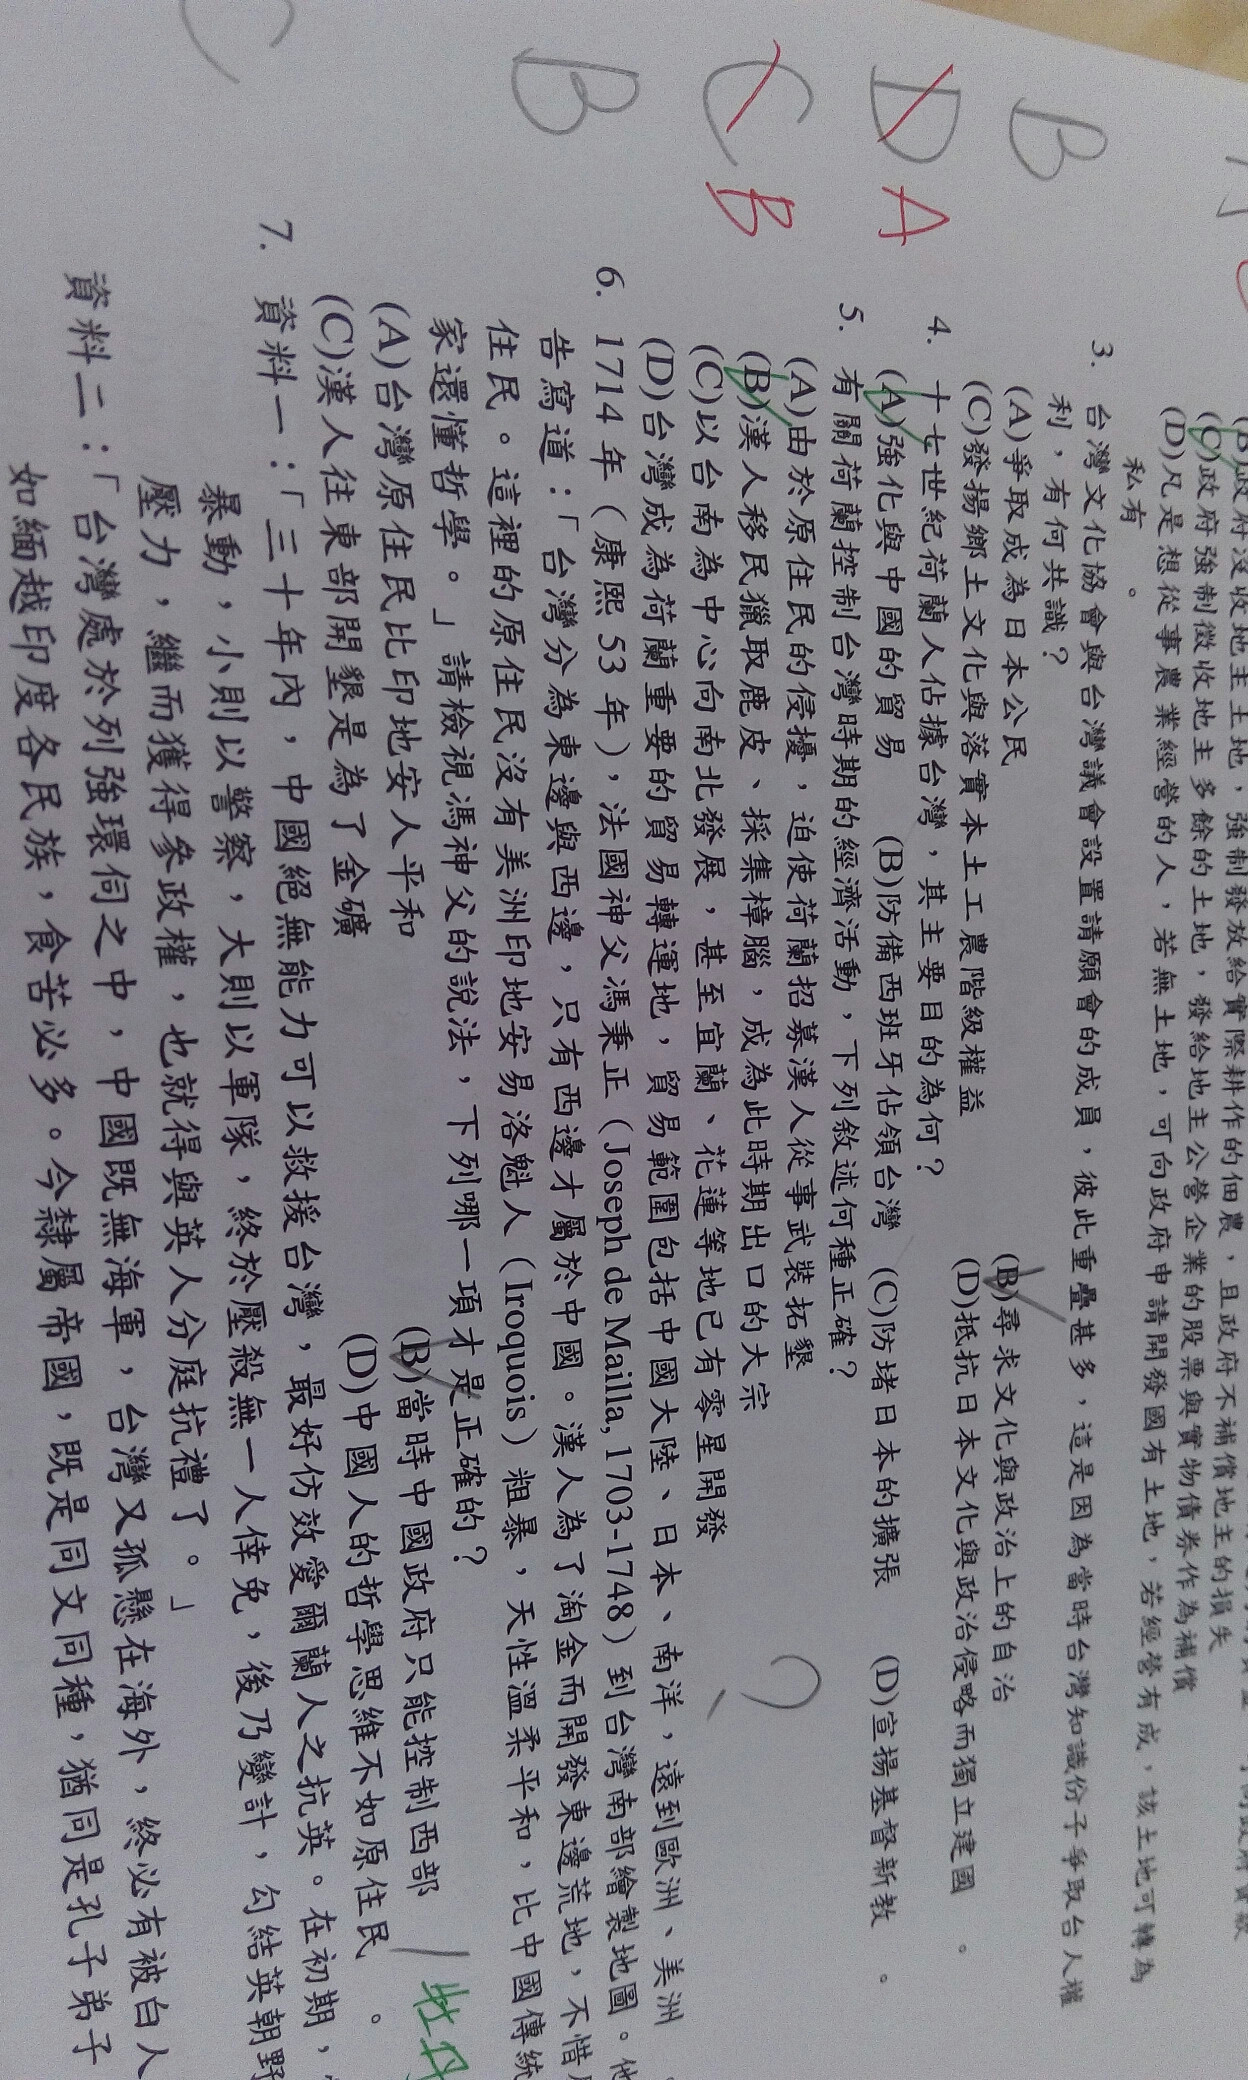 (B)政府沒收地主土地，強制發放給實際耕作的佃農，且政府不補償地主的損失
(C)政府強制徵收地主多餘的土地，發給地主公營企業的股票與實物債券作為補償
(D)凡是想從事農業經營的人，若無土地，可向政府申請開發國有土地，若經營有成，該土地可轉為
私有。
B 3. 台灣文化協會與台灣議會設置請願會的成員，彼此重疊甚多，這是因為當時台灣知識份子爭取台人權
利，有何共識？
(A)爭取成為日本公民 (B)尋求文化與政治上的自治
(C)發揚鄉土文化與落實本土工農階級權益 (D)抵抗日本文化與政治侵略而獨立建國。
D A 4. 十七世紀荷蘭人佔據台灣，其主要目的為何？
(A)強化與中國的貿易 (B)防備西班牙佔領台灣 (C)防堵日本的擴張 (D)宣揚基督新教。
C B 5. 有關荷蘭控制台灣時期的經濟活動，下列敘述何種正確？
(A)由於原住民的侵擾，迫使荷蘭招募漢人從事武裝拓墾
(B)漢人移民獵取鹿皮、採集樟腦，成為此時期出口的大宗
(C)以台南為中心向南北發展，甚至宜蘭、花蓮等地已有零星開發
(D)台灣成為荷蘭重要的貿易轉運地，貿易範圍包括中國大陸、日本、南洋，遠到歐洲、美洲
B 6. 1714年（康熙53年），法國神父馮秉正（Joseph de Mailla, 1703-1748）到台灣南部繪製地圖。他
告寫道：「台灣分為東邊與西邊，只有西邊才屬於中國。漢人為了淘金而開發東邊荒地，不惜
住民。這裡的原住民沒有美洲印地安易洛魁人（Iroquois）粗暴，天性溫柔平和，比中國傳統
家還懂哲學。」請檢視馮神父的說法，下列哪一項才是正確的？
(A)台灣原住民比印地安人平和 (B)當時中國政府只能控制西部 牡丹
(C)漢人往東部開墾是為了金礦 (D)中國人的哲學思維不如原住民。
C 7. 資料一：「三十年內，中國絕無能力可以救援台灣，最好仿效愛爾蘭人之抗英。在初期，
暴動，小則以警察，大則以軍隊，終於壓殺無一人倖免，後乃變計，勾結英朝野
壓力，繼而獲得參政權，也就得與英人分庭抗禮了。」
資料二：「台灣處於列強環伺之中，中國既無海軍，台灣又孤懸在海外，終必有被白人
如緬越印度各民族，食苦必多。今隸屬帝國，既是同文同種，猶同是孔子弟子